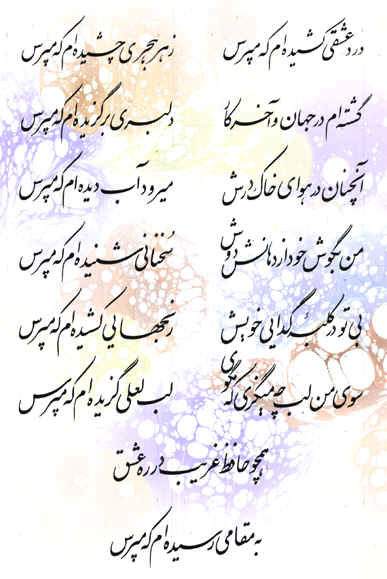 درد عشقی کشیده ام که مپرس زهر هجری چشیده ام که مپرس
گشته ام در جهان و آخر کار دلبری برگزیده ام که مپرس
آنچنان در هوای خاک درش میرود آب دیده ام که مپرس
من بگوش خود از دهانش دوش سخنانی شنیده ام که مپرس
بی تو در کلبه گدایی خویش رنجهایی کشیده ام که مپرس
سوی من لب چه میگزی که مگوی لب لعلی گزیده ام که مپرس
همچو حافظ غریب در ره عشق
به مقامی رسیده ام که مپرس